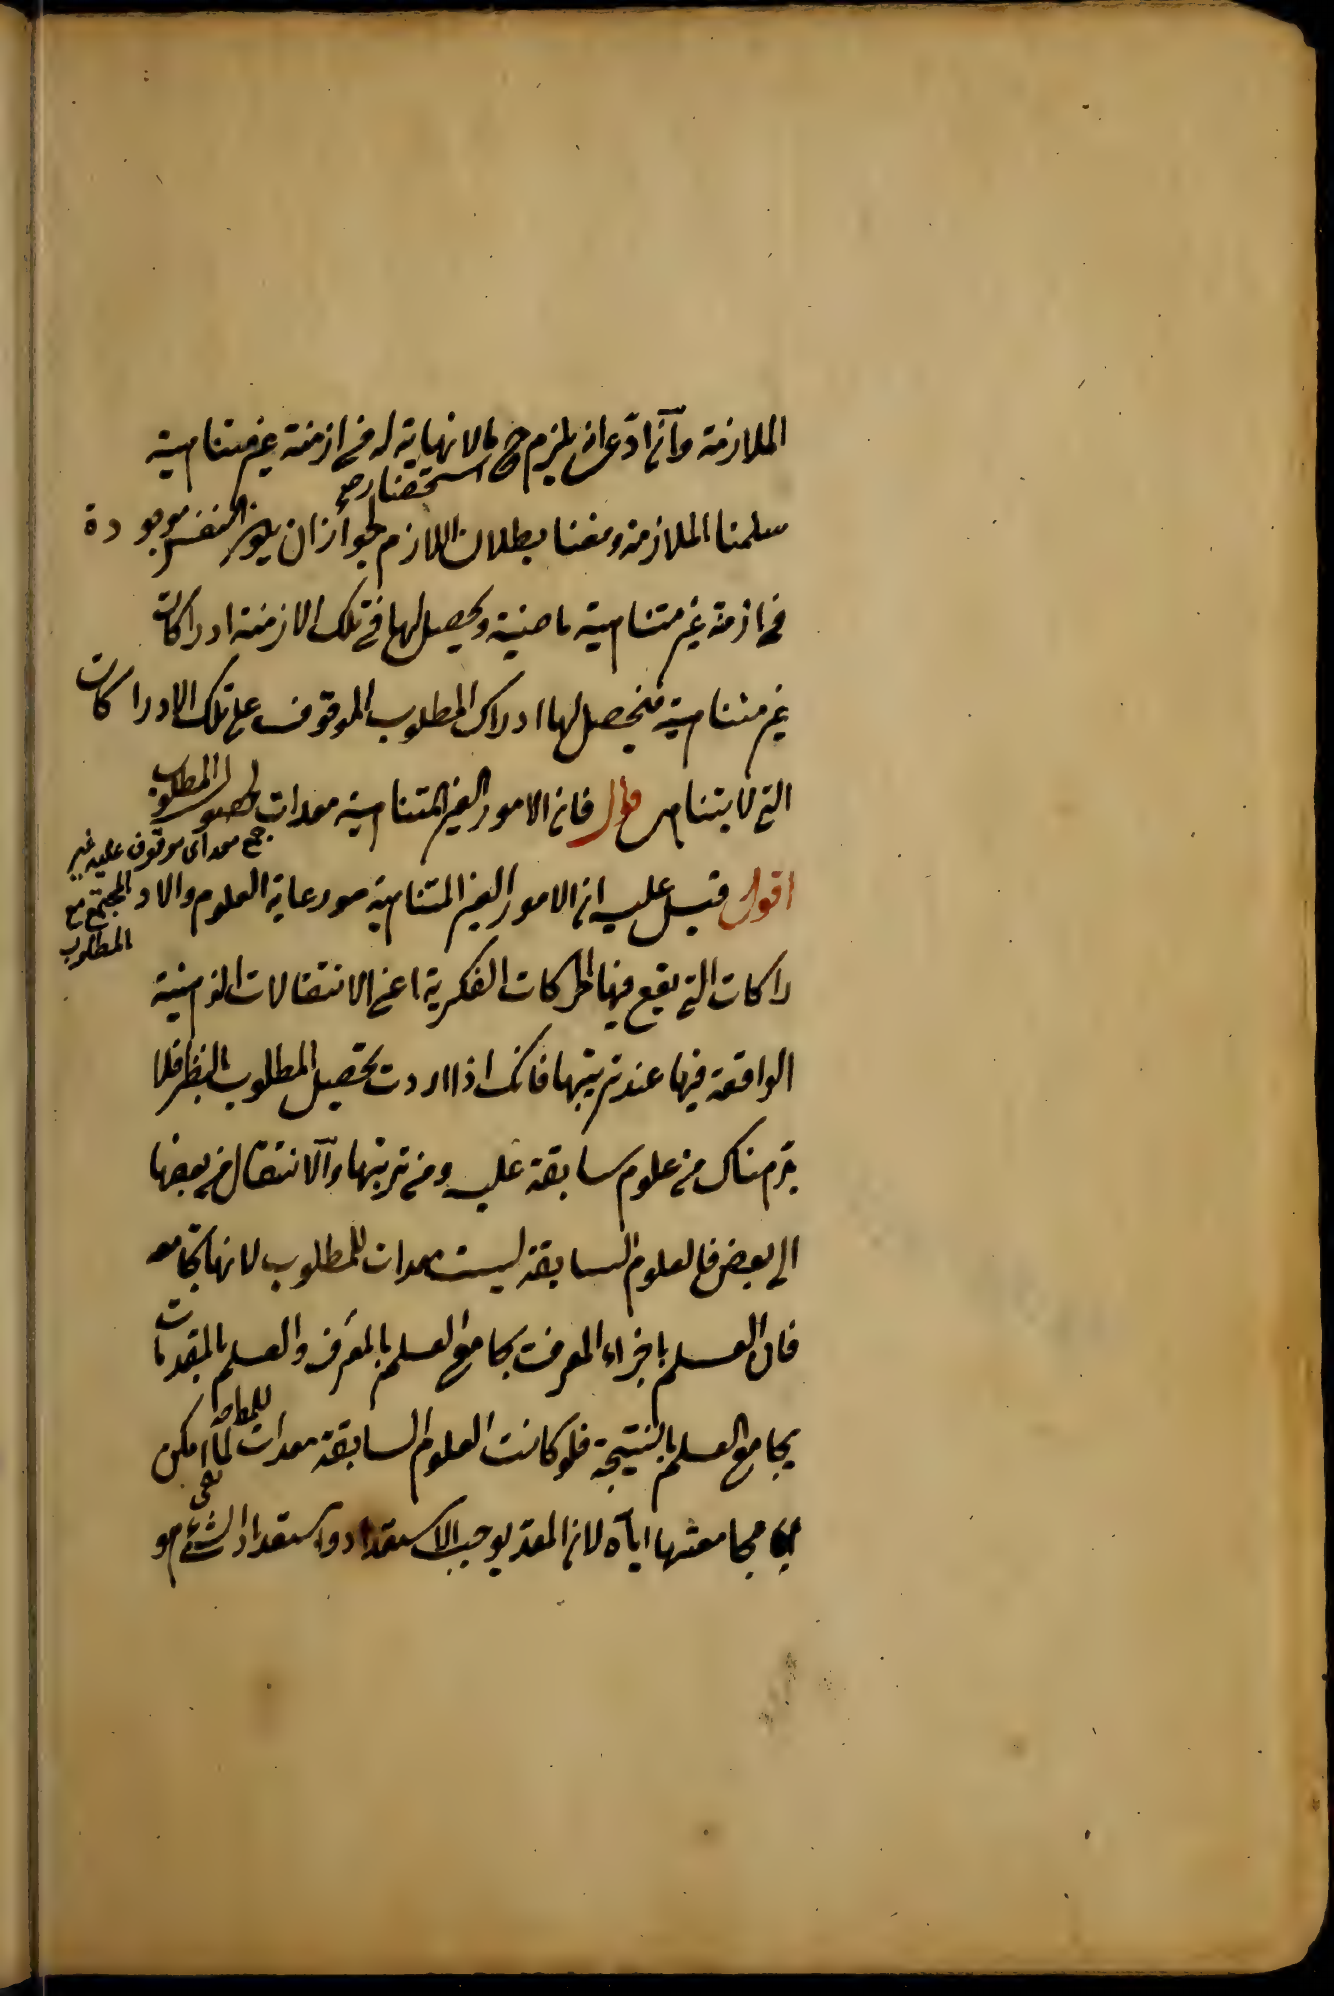 الملازمة وان ادعى انه يلزم ح استحضار ما لا نهاية له في ازمنة غير متناهية
سلمنا الملازمة ومنعنا بطلان اللازم لجواز ان يكون النفس موجودة
في ازمنة غير متناهية ماضية ويحصل لها في تلك الازمنة ادراكات
غير متناهية فيحصل لها ادراك المطلوب الموقوف على تلك الادراكات
التي لا يتناهى قوله فان الامور الغير المتناهية معدات لحصول المطلوب
جمع معد اى موقوف عليه غير
المجتمع مع
المطلوب
اقول قيل عليه ان الامور الغير المتناهية هو رعاية العلوم والاد
راكات التي يقع فيها الحركات الفكرية اعنى الانتقالات الزمنية
الواقعة فيها عند ترتيبها فانك اذا اردت تحصيل المطلوب بالنظر فلا
بد هناك من علوم سابقة عليه ومن ترتيبها والانتقال من بعضها
الى بعض فالعلوم السابقة ليست معدات للمطلوب لانها تجامعه
فان العلم باجزاء المعرف يجامع العلم بالمعرف والعلم بالمقدمات
يجامع العلم بالنتيجة فلو كانت العلوم السابقة معدات للمطلوب لما امكن
مجامعتها اياه لان المعد يوجب الاستعداد واستعداد الشئ هو